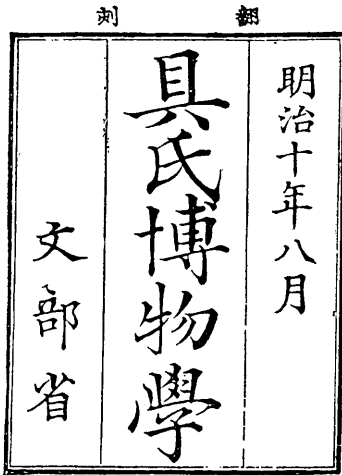 翻刻
明治十年八月
具氏博物學
文部省